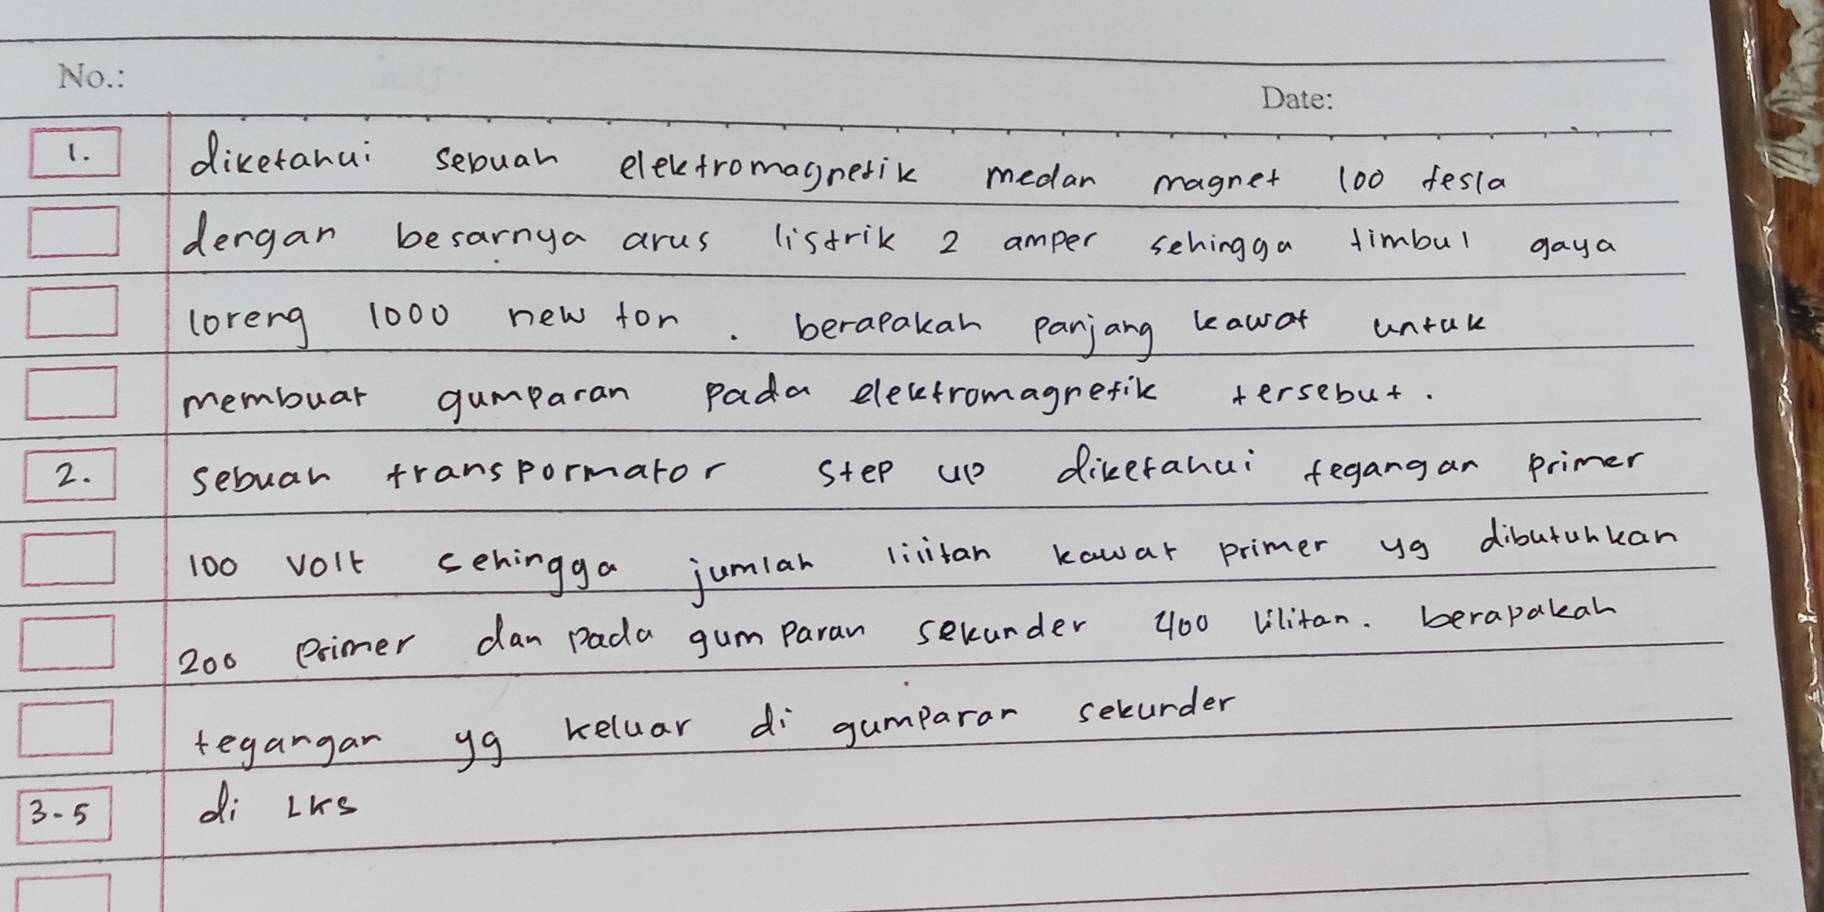 No.:
Date:
1. diketahui sebuah elektromagnetik medan magnet 100 tesla
dengan besarnya arus listrik 2 amper sehingga timbul gaya
loreng 1000 new ton. berapakah panjang kawat untuk
membuat gumparan pada elektromagnetik tersebut.
2. sebuah transpormator step up diketahui tegangan primer
100 volt sehingga jumlah lilitan kawat primer yg dibutuhkan
200 primer dan pada gumparan sekunder 400 lilitan. berapakah
tegangan yg keluar di gumparan sekunder
3-5 di LKS